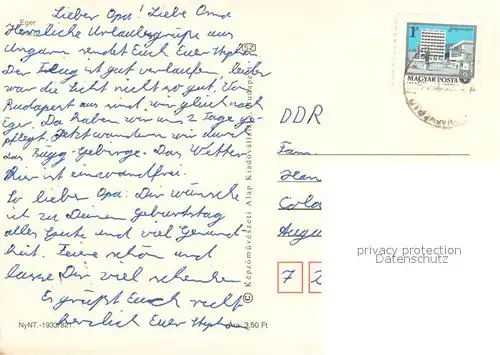 Eger
Lieber Opa! Liebe Oma
Herzliche Urlaubsgrüße aus
Ungarn sendet Euch Euer Stephan
Der Flug ist gut verlaufen, leider
war die Sicht nicht so gut. Von
Budapest aus sind wir gleich nach
Eger. Da haben wir uns 2 Tage ge-
pflegt. Jetzt wandern wir durch
das Bügg-Gebirge. Das Wetter
hier ist einwandfrei.
So lieber Opa: Dir wünsche
ich zu Deinem Geburtstag
alles Gute und viel Gesund-
heit. Feiere schön und
lasse Dir viel schenken
Es grüßt Euch recht
herzlich Euer Stephan
NyNT.-1933/821.
Ára: 3,50 Ft
SZ
© Képzőművészeti Alap Kiadóvállalata, Budapest
1Ft
MAGYAR POSTA
DDR
Fam.
Han
Augu
7 2
privacy protection
Datenschutz